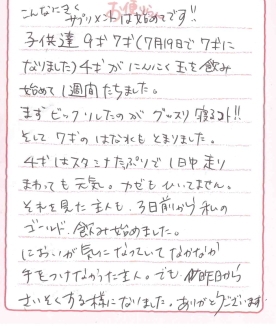 お便り
こんなにきく
サプリメントは始めてです!!
子供達 9才7才(7月19日で7才に
なりました)4才がにんにく玉を飲み
始めて1週間たちました。
まずビックリしたのがグッスリ寝るコト!!
そして7才のはなぢもとまりました。
4才はスタミナたっぷりで1日中走り
まわっても元気。カゼもひいてません。
それを見た主人も、3日前から私の
ゴールド、飲み始めました。
においが気になっていてなかなか
手をつけなかった主人。でも昨日から
さいそくする様になりました。ありがとうございます